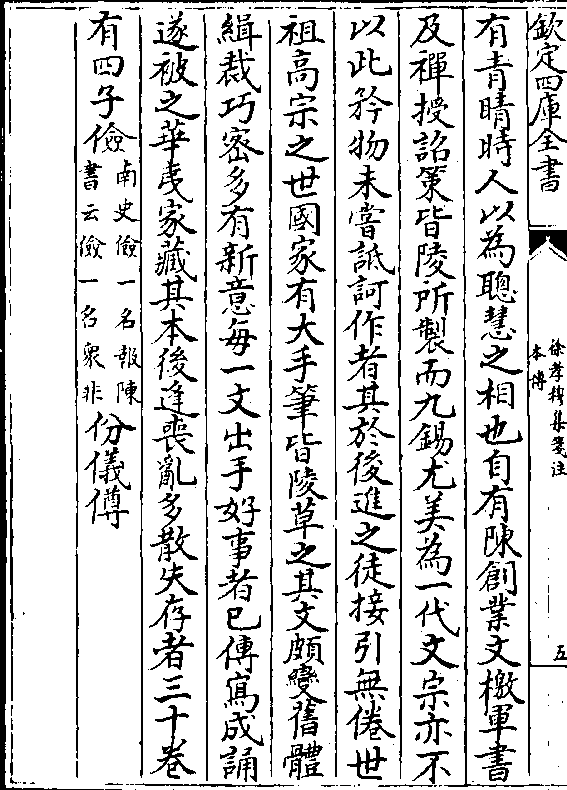 欽定四庫全書
徐孝穆集箋注
本傳
五
有青睛時人以為聰慧之相也自有陳創業文檄軍書
及禪授詔策皆陵所製而九錫尤美為一代文宗亦不
以此矜物未嘗詆訶作者其於後進之徒接引無倦世
祖高宗之世國家有大手筆皆陵草之其文頗變舊體
緝裁巧密多有新意每一文出手好事者已傳寫成誦
遂被之華夷家藏其本後逢喪亂多散失存者三十卷
有四子儉南史儉一名報陳書云儉一名衆非份儀僔